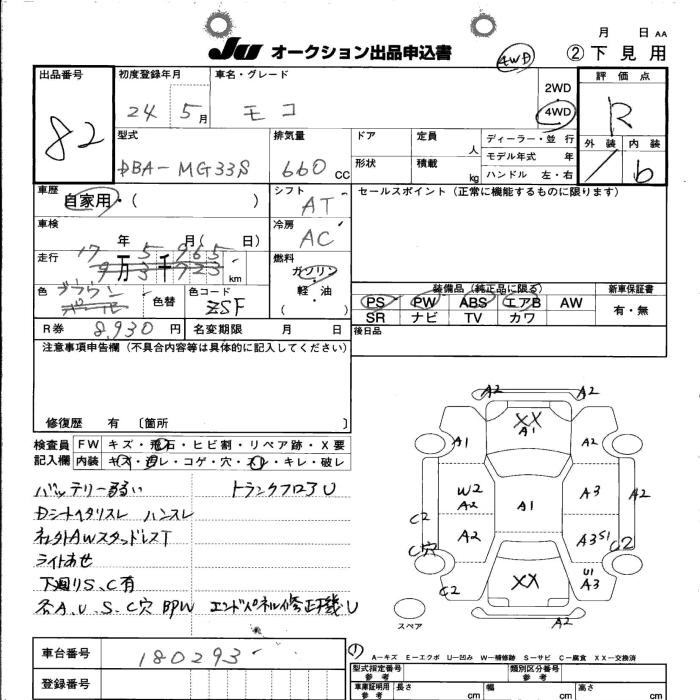 月 日 AA
JU オークション出品申込書 4WD ② 下見用
出品番号 82
初度登録年月 24 5月
車名・グレード モコ
2WD
4WD
評価点 R
外装 内装 6
型式 DBA-MG33S
排気量 660 CC
ドア 定員 人
形状 積載 kg
ディーラー・並行
モデル年式 年
ハンドル 左・右
車歴 自家用・( )
シフト AT
セールスポイント (正常に機能するものに限ります)
車検 年 月( 日)
冷房 AC
走行 17 5 965
9万3千923 km
燃料 ガソリン
軽・油
( )
色 ブラウン
パール
色替
色コード ZSF
装備品 (純正品に限る)
PS PW ABS エアB AW
SR ナビ TV カワ
新車保証書
有・無
R券 8,930 円 名変期限 月 日
後日品
注意事項申告欄 (不具合内容等は具体的に記入してください)
修復歴 有 〔箇所 〕
検査員 FW キズ・飛石・ヒビ割・リペア跡・X要
記入欄 内装 キズ・汚レ・コゲ・穴・スレ・キレ・破レ
バッテリーよわい トランクフロアU
Dシートヘタリスレ ハンスレ
社外AWスタッドレスT
ライトあせ
下廻りS、C有
各A、U、S、C穴 BPW エンドパネル修正機U
A2 A2
XX
A1
A1 A2
W2
A2
A1
A3
A2
C2
A2
A3 S1
C2
C穴
C2
XX
U1
A3
A2
スペア
A-キズ E-エクボ U-凹み W-補修跡 S-サビ C-腐食 XX-交換済
車台番号 180293
登録番号
型式指定番号
参考
類別区分番号
参考
車庫証明用
参考
長さ cm
幅 cm
高さ cm